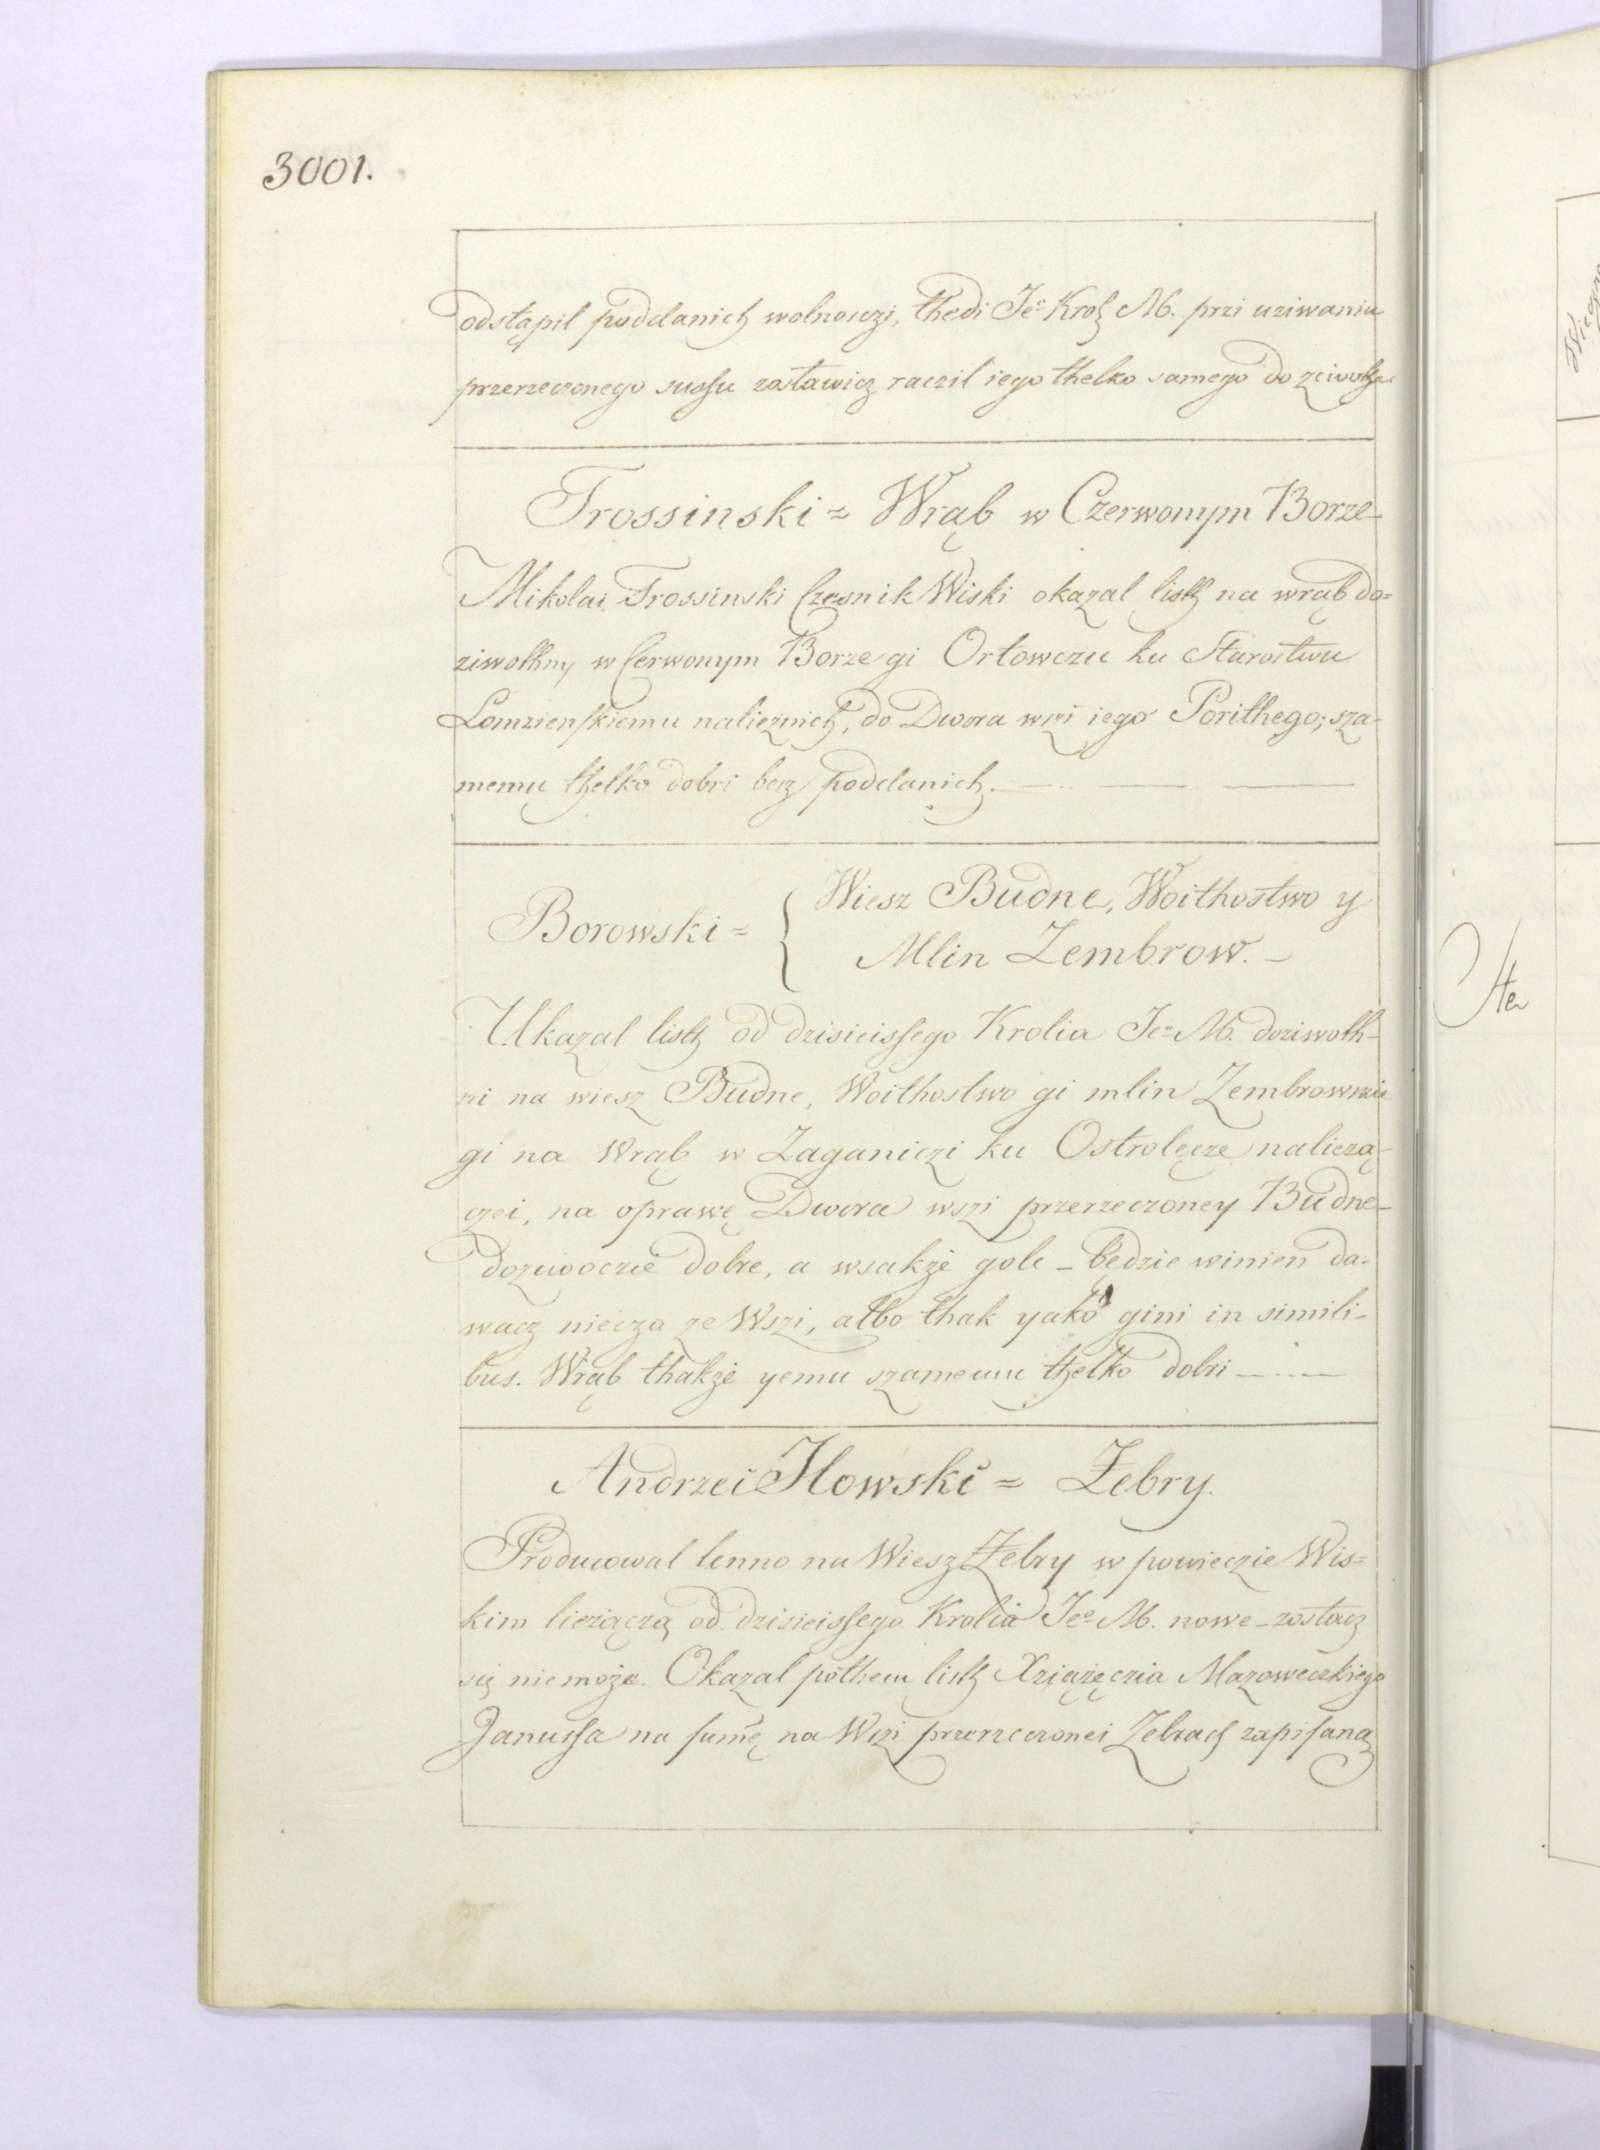 3001.
odstąpil poddanich wolnosczi, thedi Je° Krol M. przi uziwaniu
przerzeczonego sussu zostawicz raczil iego thelko samego do
Trossinski = Wrąb w Czerwonym Borze
Mikolai Trossinski Czesnik Wiski okazal listh na wrąb do=
ziwothny w Cerwonym Borze gi Orłowczu ku Starostwu
Lomzienskiemu nalieznich, do Dwora wszi iego Porithego; sza-
memu thelko dobri besz poddanich.
Borowski = { Wiesz Budne, Woithostwo y
Mlin Zembrow. -
Ukazal listh od dzisieissego Krolia Je° M. doziwoth-
ni na wiesz Budne, Woithostwo gi mlin Zembrowski
gi na Wrąb w Zaganiczi ku Ostrolęcze naliczą-
czei, na oprawę Dwora wszi przerzeczoney Budne-
dozywoczie dobre, a wsakże goli - będzie winien da-
wacz niecza ze Wszi, albo thak yako gini in simili-
bus. Wrąb thakże yemu szamemu thelko dobri
Andrzei Ilowski = Żebry.
Producowal lenno na Wiesz Żebry w powieczie Wis=
kim lieżączą od dzisieissego Krolia Je° M. nowe - zostacz
się niemoże. Okazal pothem listh Xziążęczia Mazoweczkiego
Janussa na sum̃ę na Wszi przerzeczonei Zebrach zapisaną
Wiegrz
Ste